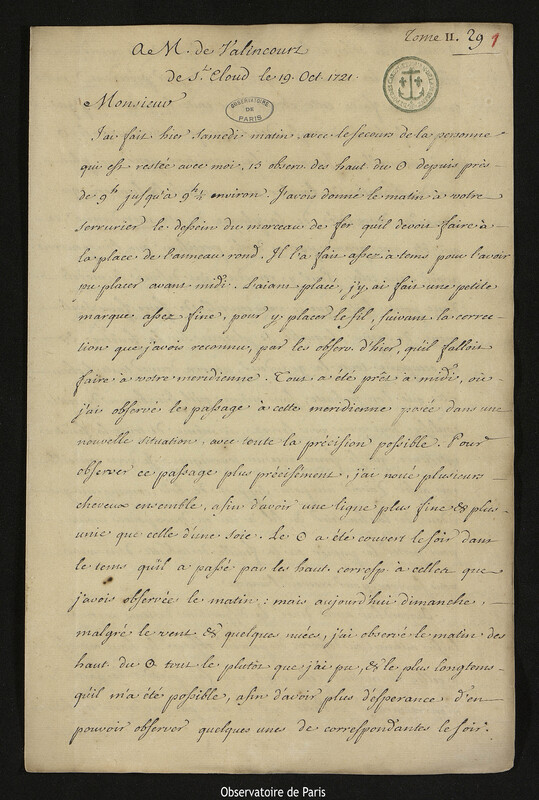 Tome II. 29 1
A M. de Valincourt
de St. Cloud le 19. Oct. 1721.
OBSERVATOIRE DE PARIS
Monsieur
J'ai fait hier Samedi matin avec le secours de la personne
qui est restée avec moi, 15 observ. des haut. du ☉ depuis près
de 9h jusqu'à 9h ½ environ. J'avois donné le matin à votre
serrurier le dessein du morceau de fer qu'il devoit faire à
la place de l'anneau rond. Il l'a fait assez à tems pour l'avoir
pu placer avant midi. L'aiant placé, j'y ai fait une petite
marque assez fine, pour y placer le fil, suivant la correc-
tion que j'avois reconnu, par les observ. d'hier, qu'il falloit
faire à votre meridienne. Tout a été prêt à midi, où
j'ai observé les passage à cette meridienne posée dans une
nouvelle situation, avec toute la précision possible. Pour
observer ce passage plus précisément, j'ai noué plusieurs
cheveux ensemble, afin d'avoir une ligne plus fine & plus
unie que celle d'une soie. Le ☉ a été couvert le soir dans
le tems qu'il a passé par les haut. corresp. à celles que
j'avois observée le matin : mais aujourd'hui dimanche,
malgré le vent & quelques nuées, j'ai observé le matin des
haut. du ☉ tout le plutôt que j'ai pu, & le plus longtems
qu'il m'a été possible, afin d'avoir plus d'esperance d'en
pouvoir observer quelques unes de correspondantes le soir.
Observatoire de Paris